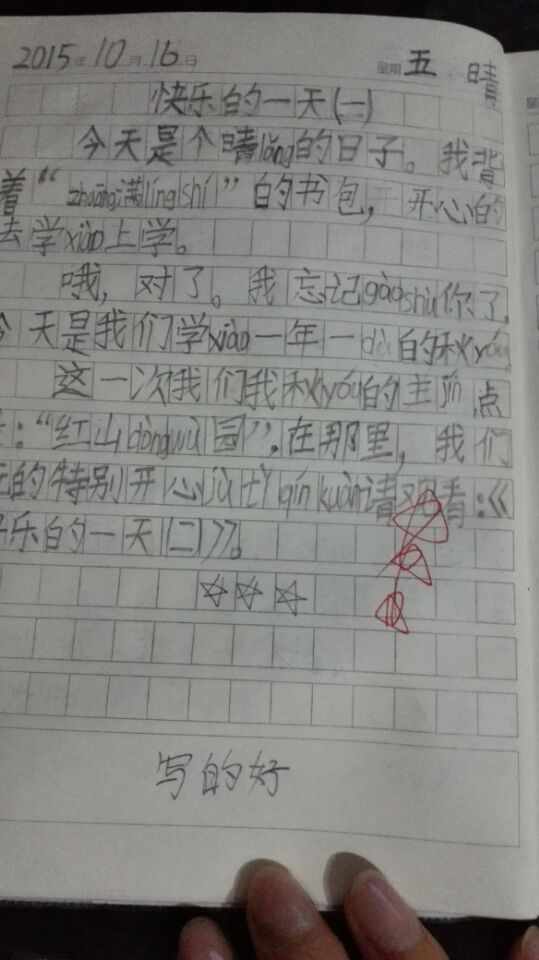 2015年10月16日 星期五 晴
快乐的一天(一)
今天是个晴lǎng的日子。我背
着“zhuāng满língshí”的书包，开心的
去学xiào上学。
哦，对了。我忘记gàoshù你了，
今天是我们学xiào一年一dù的秋yóu
这一次我们我秋yóu的主jǐn点
：“红山dòngwù园”。在那里，我们
的特别开心jù tǐ qín kuàn请观看：《
乐的一天(二)》。
写的好